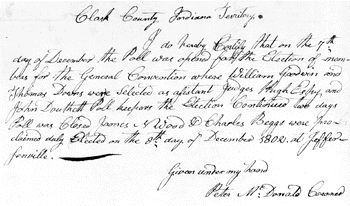 Clark County Indiana Territory.
I do hereby Certify that on the 7th
day of December the Poll was opened for the Election of mem-
bers for the General Convention where William Goodwin and
Thomas Downs were Selected as assistant Judges Hugh Espy, and
John Douthett Poll keepers the Election Continued two days
Poll was Closed James N Wood & Charles Beggs were pro-
claimed duly Elected on the 8th day of December 1802, at Jeffer-
sonville.
Given under my hand
Peter McDonald Coroner